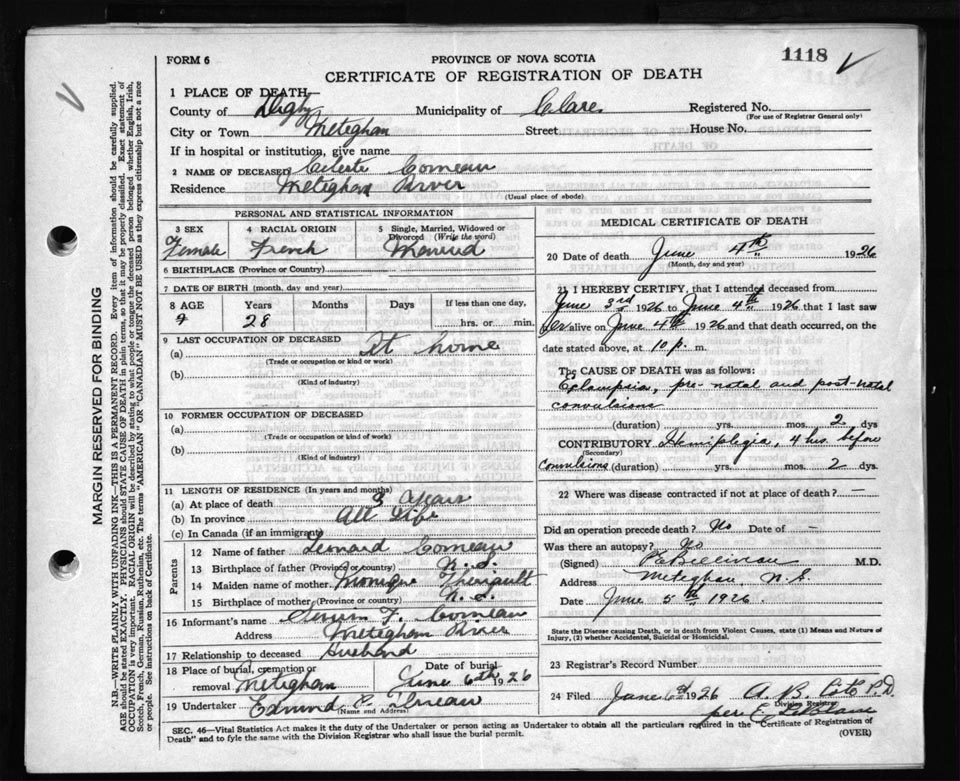 1118
FORM 6
PROVINCE OF NOVA SCOTIA
CERTIFICATE OF REGISTRATION OF DEATH
1 PLACE OF DEATH—
County of Digby Municipality of Clare Registered No.
(For use of Registrar General only)
City or Town Meteghan Street House No.
If in hospital or institution, give name
2 NAME OF DECEASED Celeste Comeau
Residence Meteghan River
(Usual place of abode)
PERSONAL AND STATISTICAL INFORMATION
3 SEX 4 RACIAL ORIGIN 5 Single, Married, Widowed or Divorced (Write the word)
Female French Married
6 BIRTHPLACE (Province or Country)
7 DATE OF BIRTH (month, day and year)
8 AGE Years Months Days If less than one day,
28 hrs. or min.
9 LAST OCCUPATION OF DECEASED
(a) At home
(Trade or occupation or kind of work)
(b)
(Kind of industry)
10 FORMER OCCUPATION OF DECEASED
(a)
(Trade or occupation or kind of work)
(b)
(Kind of industry)
11 LENGTH OF RESIDENCE (In years and months)
(a) At place of death 3 years
(b) In province All Life
(c) In Canada (if an immigrant)
Parents
12 Name of father Leonard Comeau
13 Birthplace of father (Province or country) N.S.
14 Maiden name of mother Monique
15 Birthplace of mother (Province or country) N.S.
16 Informant's name F. Comeau
Address Meteghan River
17 Relationship to deceased Husband
18 Place of burial, cremation or Date of burial
removal Meteghan June 6th 1926
19 Undertaker Edmund
(Name and Address)
MEDICAL CERTIFICATE OF DEATH
20 Date of death June 4th 1926
(Month, day and year)
21 I HEREBY CERTIFY, that I attended deceased from
June 3rd 1926 to June 4th 1926 that I last saw
her alive on June 4th 1926 and that death occurred, on the
date stated above, at 10 p. m.
The CAUSE OF DEATH was as follows:
Eclampsia, pre-natal and post-natal
convulsions
(duration) yrs. mos. 2 dys
CONTRIBUTORY Hemiplegia, 4 hrs. before
(Secondary)
convulsions (duration) yrs. mos. 2 dys.
22 Where was disease contracted if not at place of death? —
Did an operation precede death? No Date of —
Was there an autopsy? No
(Signed) M.D.
Address Meteghan N.S.
Date June 5th 1926.
State the Disease causing Death, or in death from Violent Causes, state (1) Means and Nature of
Injury, (2) whether Accidental, Suicidal or Homicidal.
23 Registrar's Record Number
24 Filed June 1926 A. B. Cote P.D.
Division Registrar
per
SEC. 46—Vital Statistics Act makes it the duty of the Undertaker or person acting as Undertaker to obtain all the particulars required in the "Certificate of Registration of
Death" and to fyle the same with the Division Registrar who shall issue the burial permit. (OVER)
MARGIN RESERVED FOR BINDING
N.B.—WRITE PLAINLY WITH UNFADING INK—THIS IS A PERMANENT RECORD. Every item of information should be carefully supplied.
AGE should be stated EXACTLY. PHYSICIANS should STATE CAUSE OF DEATH in plain terms, so that it may be properly classified. Exact statement of
OCCUPATION is very important. RACIAL ORIGIN will be described by stating to what people or tongue the deceased person belonged whether English, Irish,
Scotch, French, German, Russian, Ruthenian, etc. The terms "AMERICAN" OR "CANADIAN" MUST NOT BE USED as they express citizenship but not a race
or people. See instructions on back of Certificate.